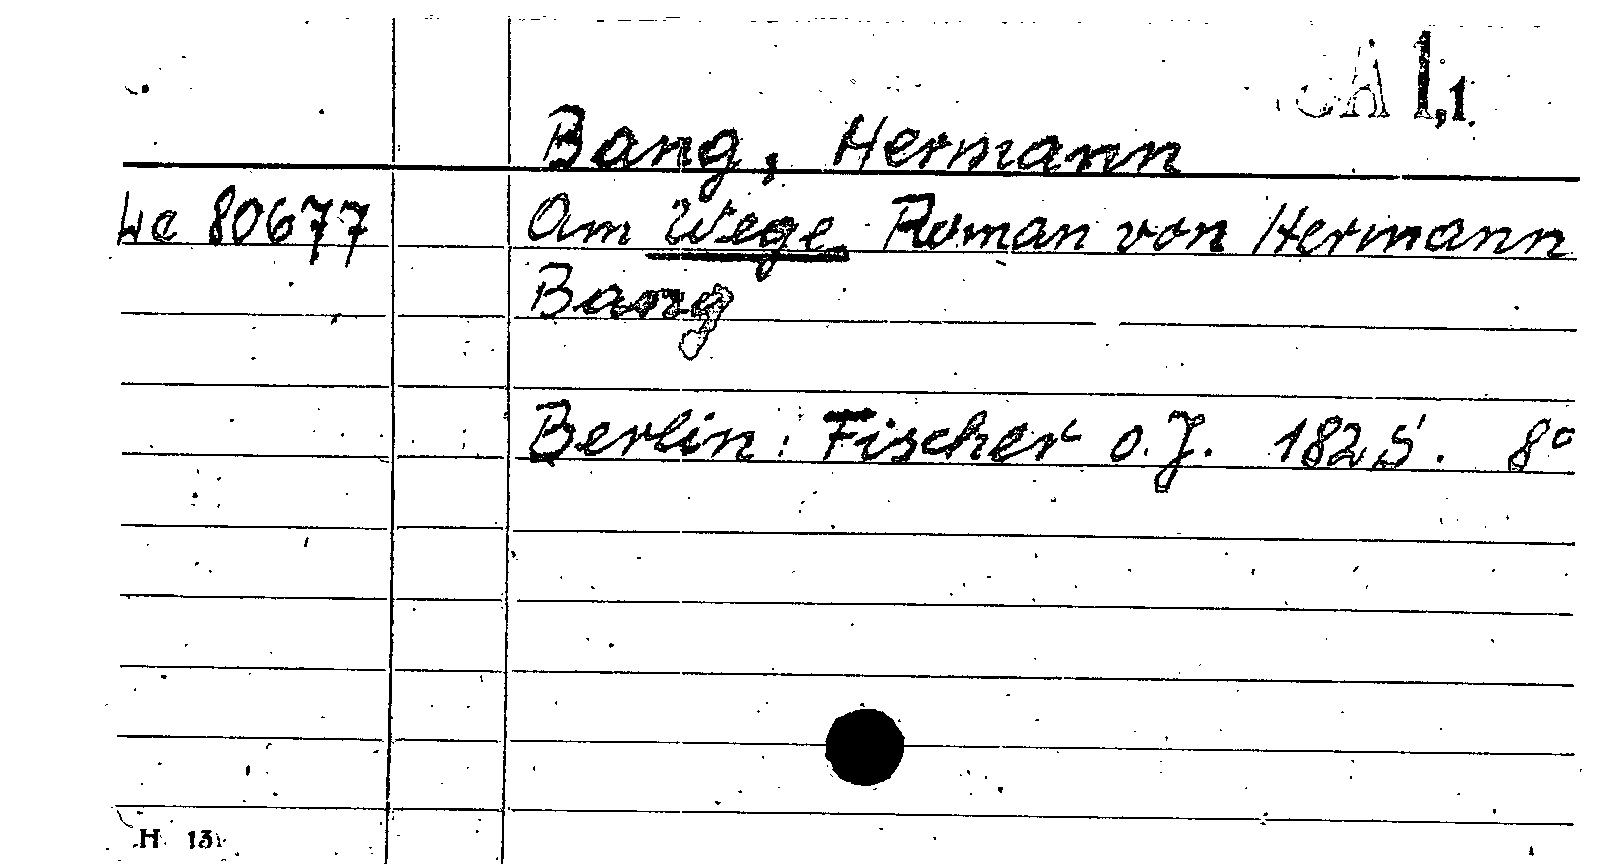 CA 1,1
Bang, Hermann
Lc 80677
Am Wege. Roman von Hermann
Bang
Berlin: Fischer o.J. 182 S. 8°
H 13